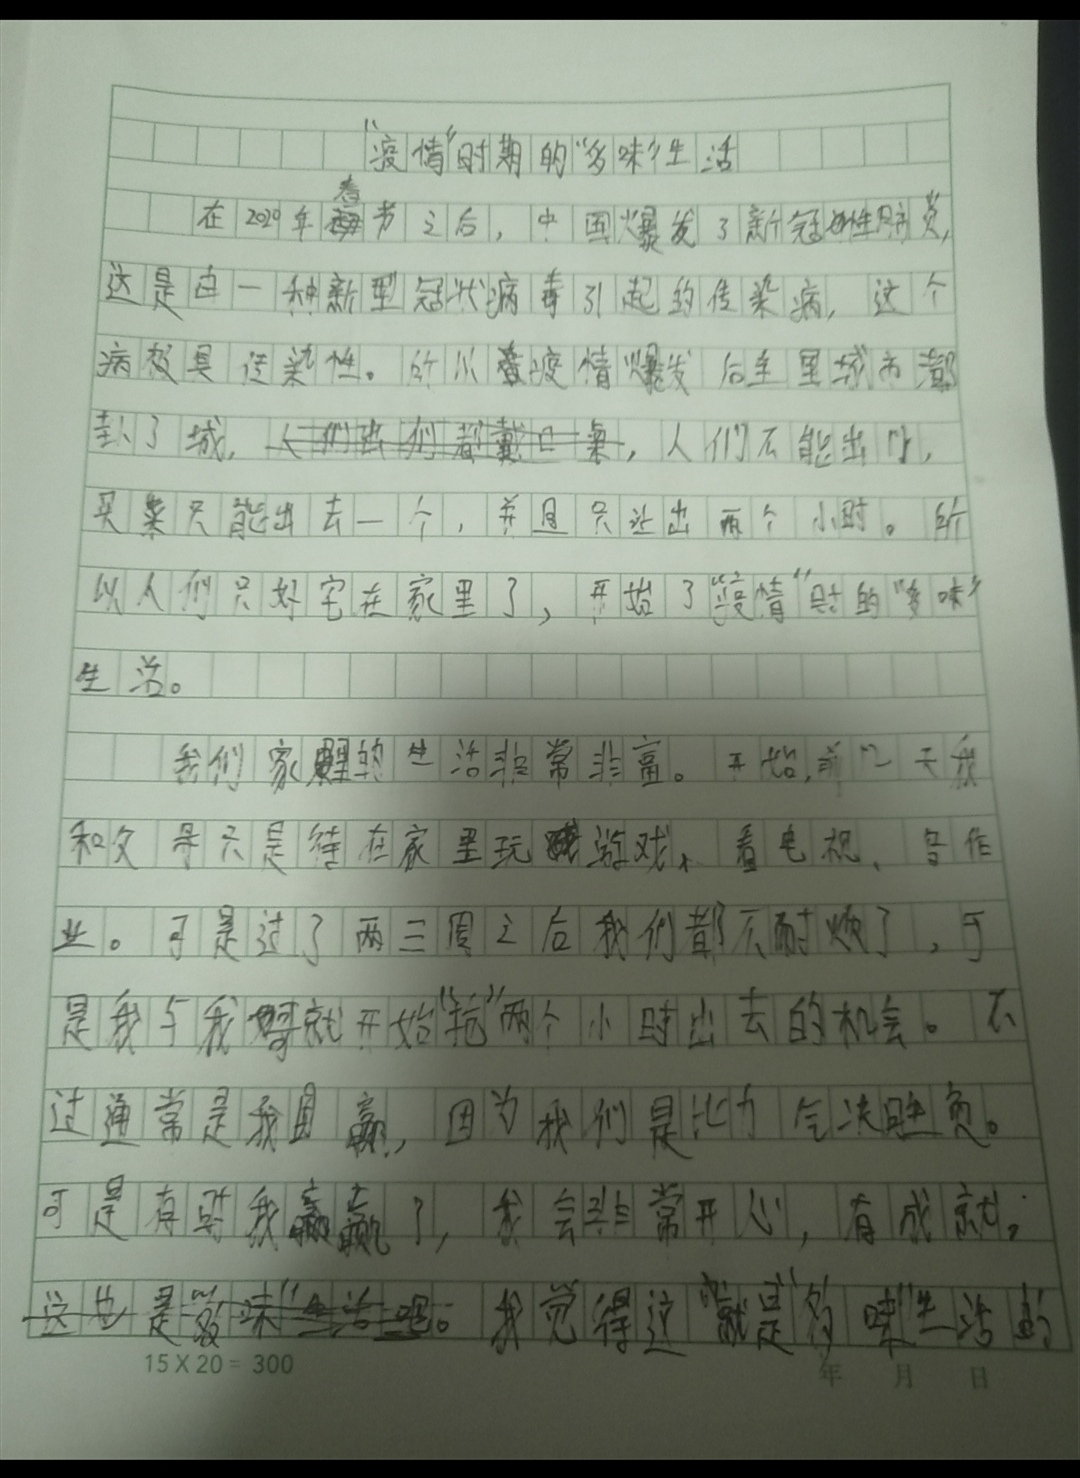 “疫情”时期的“多味”生活
在2020年春节之后，中国爆发了新冠性肺炎，
这是由一种新型冠状病毒引起的传染病，这个
病极具传染性。所以疫情爆发后全里城市都
封了城，人们出们都戴口罩，人们不能出门，
买菜只能出去一个，并且只让出两个小时。所
以人们只好宅在家里了，开始了“疫情”时的“多味”
生活。
我们家的生活非常非富。开始，前几天我
和父母只是待在家里玩游戏、看电视、写作
业。可是过了两三周之后我们都不耐烦了，于
是我与我哥就开始“抢”两个小时出去的机会。不
过通常是我哥赢，因为我们是比力气决胜负。
可是有时我赢了，我会非常开心，有成就，
这也是“多味”生活吧。我觉得这“就是”多味”生活的
15×20=300
年 月 日